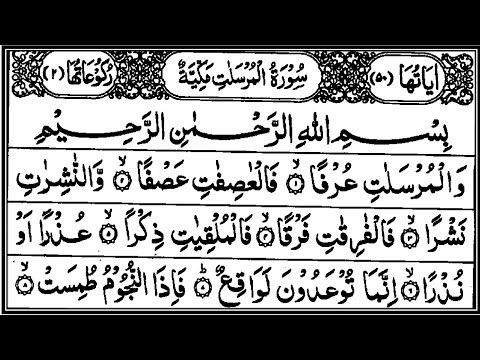 اٰيَاتُهَا (٥٠) سُوْرَةُ الْمُرْسَلٰتِ مَكِّيَّةٌ رُكُوْعَاتُهَا (٢)
بِسْمِ اللّٰهِ الرَّحْمٰنِ الرَّحِيْمِ
وَالْمُرْسَلٰتِ عُرْفًا ۙ﴿١﴾ فَالْعٰصِفٰتِ عَصْفًا ۙ﴿٢﴾ وَّالنّٰشِرٰتِ
نَشْرًا ۙ﴿٣﴾ فَالْفٰرِقٰتِ فَرْقًا ۙ﴿٤﴾ فَالْمُلْقِيٰتِ ذِكْرًا ۙ﴿٥﴾ عُذْرًا اَوْ
نُذْرًا ۙ﴿٦﴾ اِنَّمَا تُوْعَدُوْنَ لَوَاقِعٌ ؕ﴿٧﴾ فَاِذَا النُّجُوْمُ طُمِسَتْ ۙ﴿٨﴾